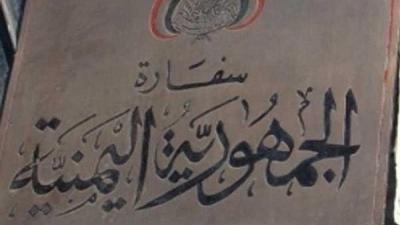 سفارة
الجمهورية اليمنية